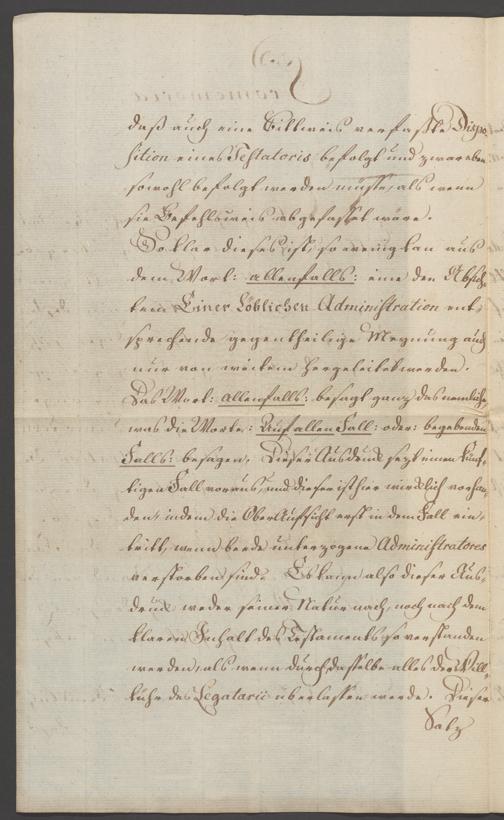 daß auch eine Bittweis verfaßte Dispo-
sition eines Testatoris befolgt und zwar eben
sowohl befolgt werden müsse, als wenn
sie Befehlsweis abgefasset wäre.
So klar dieses ist, so wenig kan aus
dem Wort: allenfalls: eine den Absich-
ten Einer Löblichen Administration ent
sprechende gegentheilige Meynung auch
nur von weitem hergeleitet werden.
Das Wort: allenfalls: besagt ganz das nemliche
was die Worte: Auf allen Fall: oder: begebenden
Falls: besagen. Dieser Ausdruck sezt einen künf-
tigen Fall voraus, und dieser ist hier wirklich vorhan-
den, indem die OberAufsicht erst in dem Fall ein-
tritt, wenn beede unterzogene Administratores
verstorben sind. Es kann also dieser Aus-
druck weder seiner Natur nach, noch nach dem
klaren Inhalt des Testaments so verstanden
werden, als wenn durch dasselbe alles der Will-
kühr des Legatarii überlassen werde. Dieser
Satz